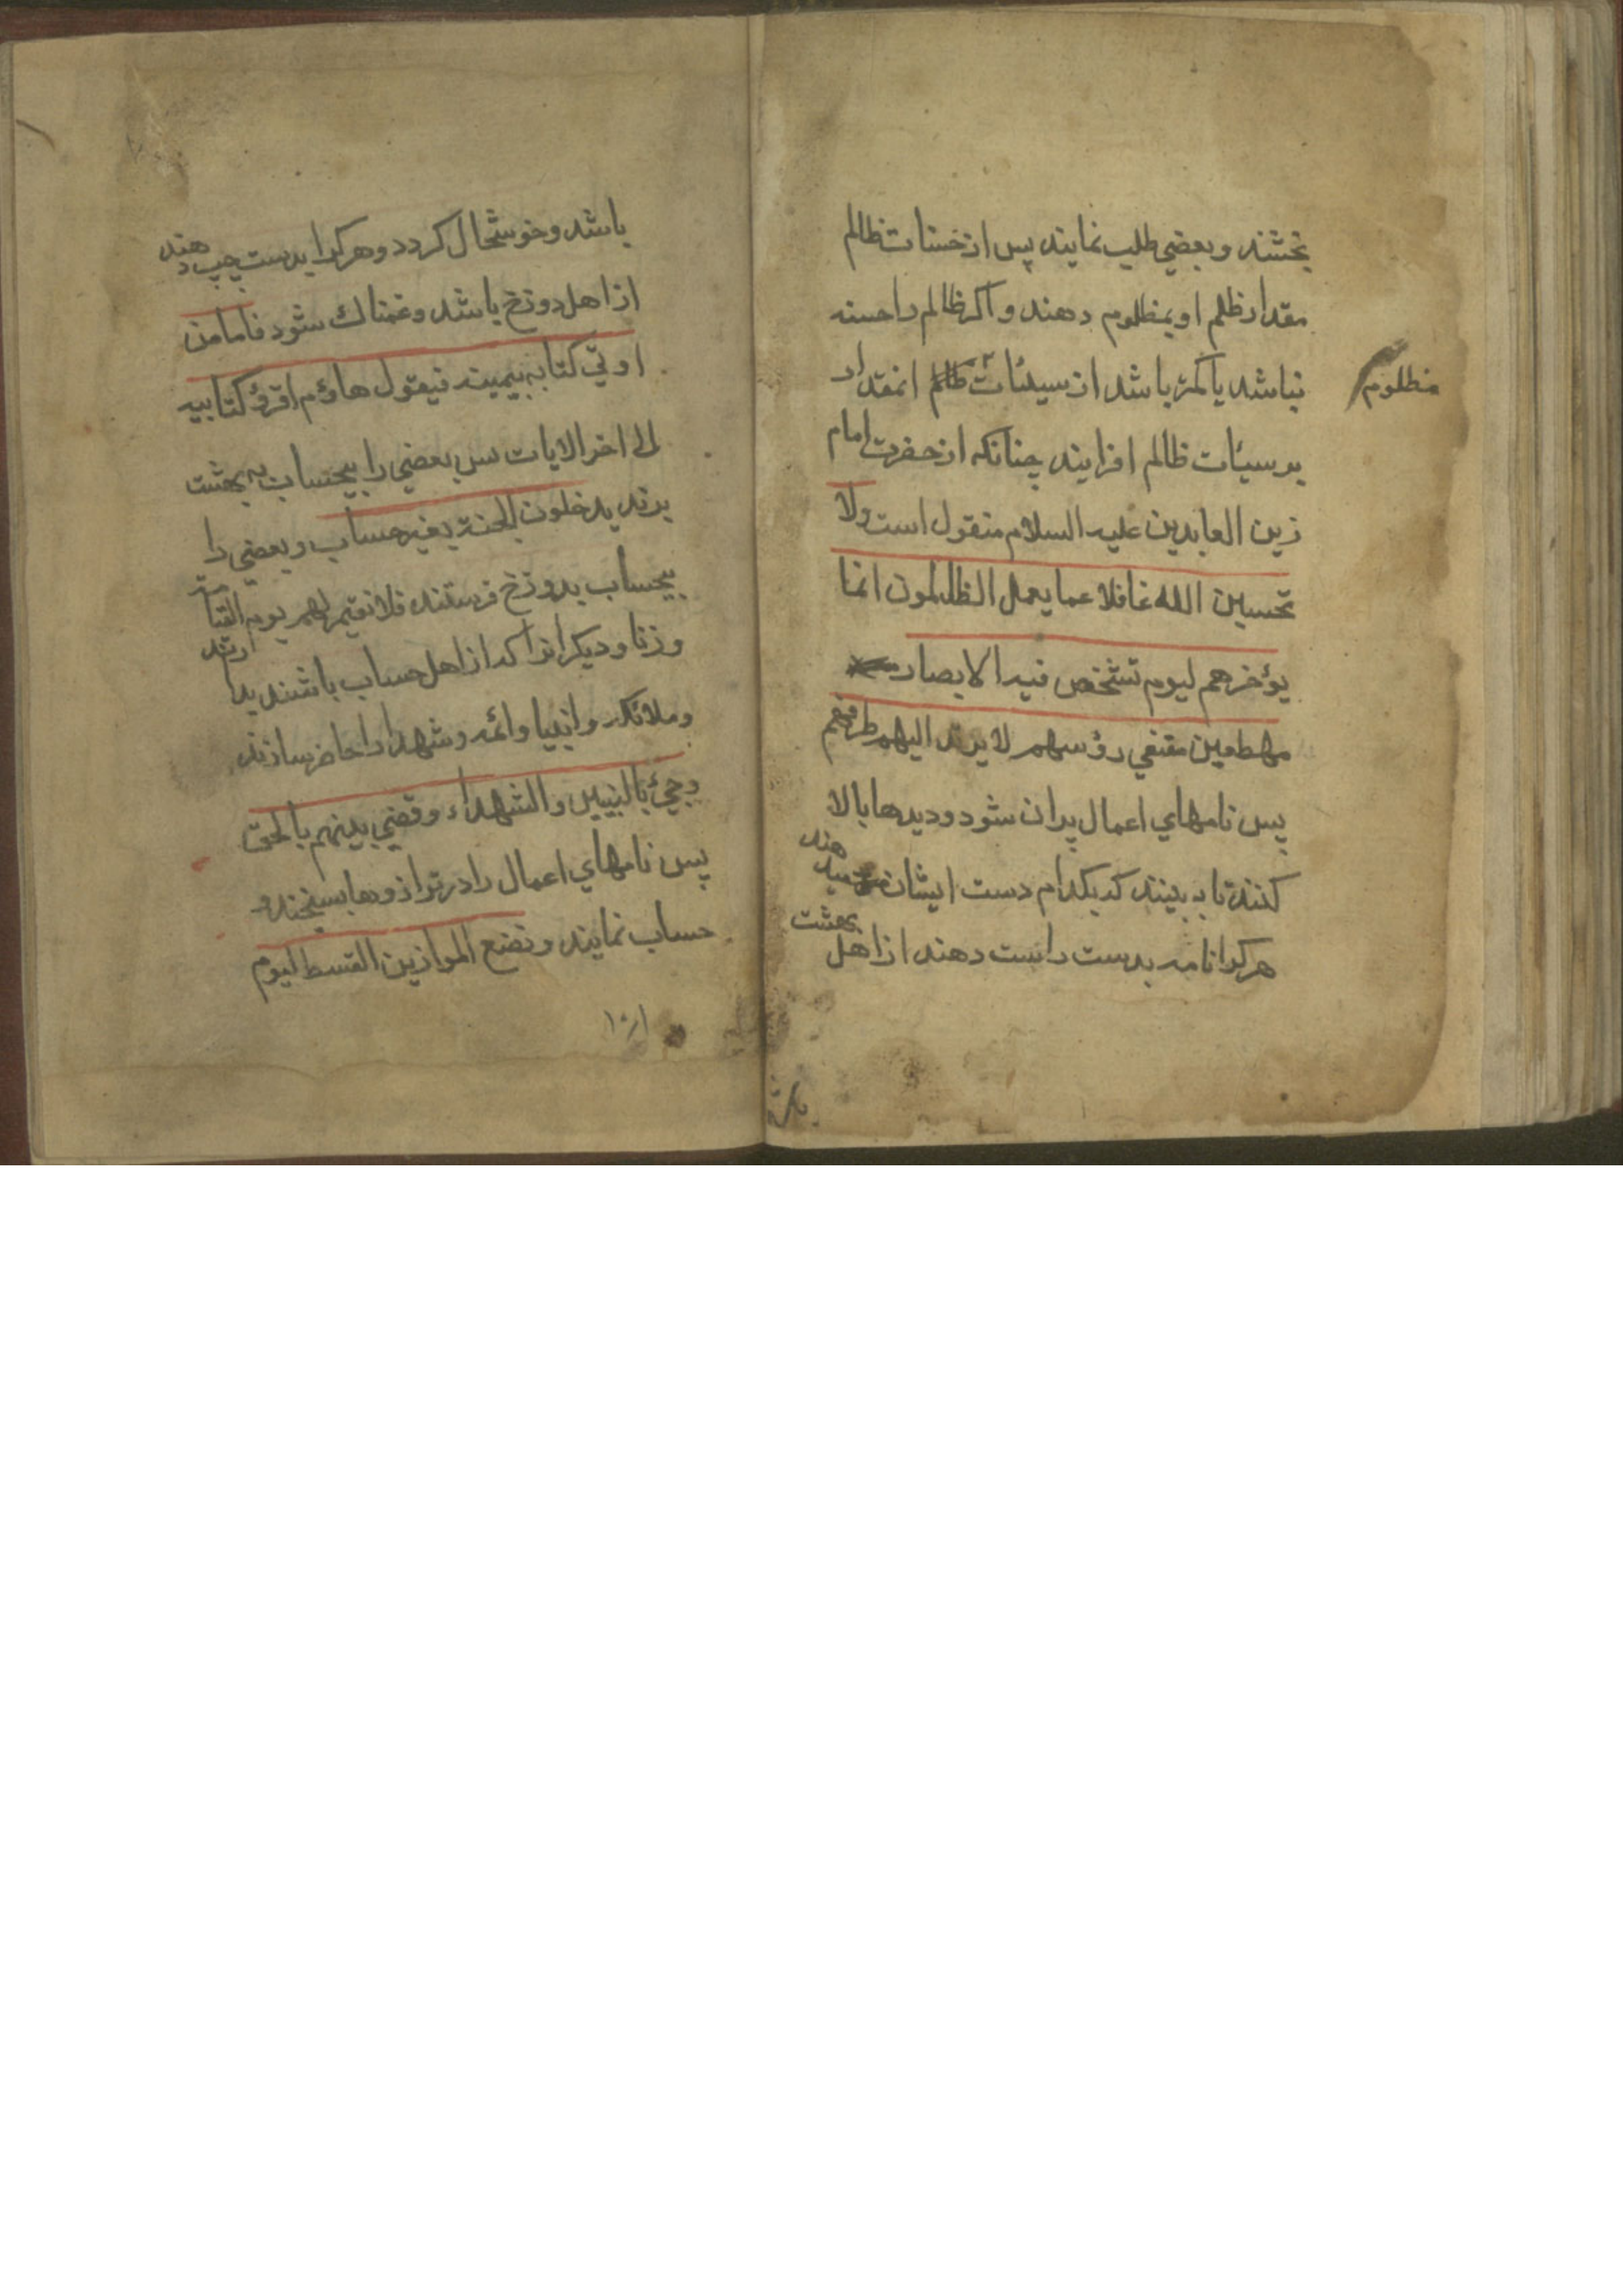 بخشند و بعضي طلب نمايند پس از حسنات ظالم
مقدار ظلم او بمظلوم دهند و اكر ظالم را حسنه
نباشد يا كمتر باشد از سيئات ظالم انمقدار
مظلوم
بر سيئات ظالم افزايند چنانكه از حضرت امام
زين العابدين عليه السلام منقول است ولا
تحسبن الله غافلا عما يعمل الظالمون انما
يؤخرهم ليوم تشخص فيه الابصار
مهطعين مقنعي رؤسهم لا يرتد اليهم طرفهم
پس نامهاي اعمال پران شود و ديدها بالا
كنند تا به بينند كه بكدام دست ايشان ميدهند
هر كرا نامه بدست راست دهند از اهل بهشت
باشد و خوشحال كردد و هر كرا بدست چپ دهند
از اهل دوزخ باشد و غمناك شود فاما من
اوتي كتابه بيمينه فيقول هاؤم اقرؤ كتابيه
الى اخر الايات پس بعضي را بيحساب به بهشت
برند يدخلون الجنة بغير حساب و بعضي را
بيحساب بدوزخ فرستند فلا نقيم لهم يوم القيامة
وزنا و ديكرانرا كه از اهل حساب باشند بدارند
و ملائكه و انبيا و ائمه و شهدا را حاضر سازند
وجئ بالنبيين والشهداء وقضي بينهم بالحق
پس نامهاي اعمال را در ترازوها بسنجند و
حساب نمايند ونضع الموازين القسط ليوم